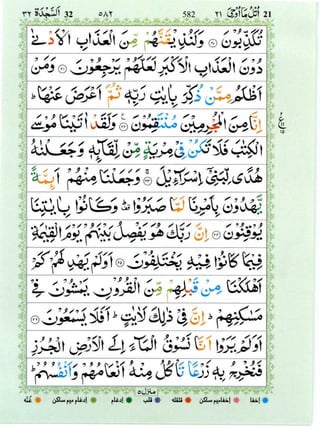 ٣٢ اَلسَّجْدَة 32 ٥٨٢ 582 ٢١ اُتْلُ مَاۤ اُوْحِیَ 21
تُكَذِّبُوْنَ ﴿۲۰﴾ وَلَنُذِیْقَنَّهُمْ مِّنَ الْعَذَابِ الْاَدْنٰی
دُوْنَ الْعَذَابِ الْاَكْبَرِ لَعَلَّهُمْ یَرْجِعُوْنَ ﴿۲۱﴾ وَمَنْ
اَظْلَمُ مِمَّنْ ذُكِّرَ بِاٰیٰتِ رَبِّهٖ ثُمَّ اَعْرَضَ عَنْهَا ؕ
اِنَّا مِنَ الْمُجْرِمِیْنَ مُنْتَقِمُوْنَ ﴿۲۲﴾ وَلَقَدْ اٰتَیْنَا مُوْسَی
الْكِتٰبَ فَلَا تَكُنْ فِیْ مِرْیَةٍ مِّنْ لِّقَآىِٕهٖ وَجَعَلْنٰهُ
هُدًی لِّبَنِیْۤ اِسْرَآءِیْلَ ﴿۲۳﴾ وَجَعَلْنَا مِنْهُمْ اَىِٕمَّةً
یَّهْدُوْنَ بِاَمْرِنَا لَمَّا صَبَرُوْا ؕ وَكَانُوْا بِاٰیٰتِنَا
یُوْقِنُوْنَ ﴿۲۴﴾ اِنَّ رَبَّكَ هُوَ یَفْصِلُ بَیْنَهُمْ یَوْمَ الْقِیٰمَةِ
فِیْمَا كَانُوْا فِیْهِ یَخْتَلِفُوْنَ ﴿۲۵﴾ اَوَلَمْ یَهْدِ لَهُمْ كَمْ
اَهْلَكْنَا مِنْ قَبْلِهِمْ مِّنَ الْقُرُوْنِ یَمْشُوْنَ فِیْ
مَسٰكِنِهِمْ ؕ اِنَّ فِیْ ذٰلِكَ لَاٰیٰتٍ ؕ اَفَلَا یَسْمَعُوْنَ ﴿۲۶﴾
اَوَلَمْ یَرَوْا اَنَّا نَسُوْقُ الْمَآءَ اِلَی الْاَرْضِ الْجُرُزِ
فَنُخْرِجُ بِهٖ زَرْعًا تَاْكُلُ مِنْهُ اَنْعَامُهُمْ وَاَنْفُسُهُمْ ؕ
منزل٥
اخفا اخفا میم ساكن قلقله قلب ادغام ادغام میم ساكن غنّه